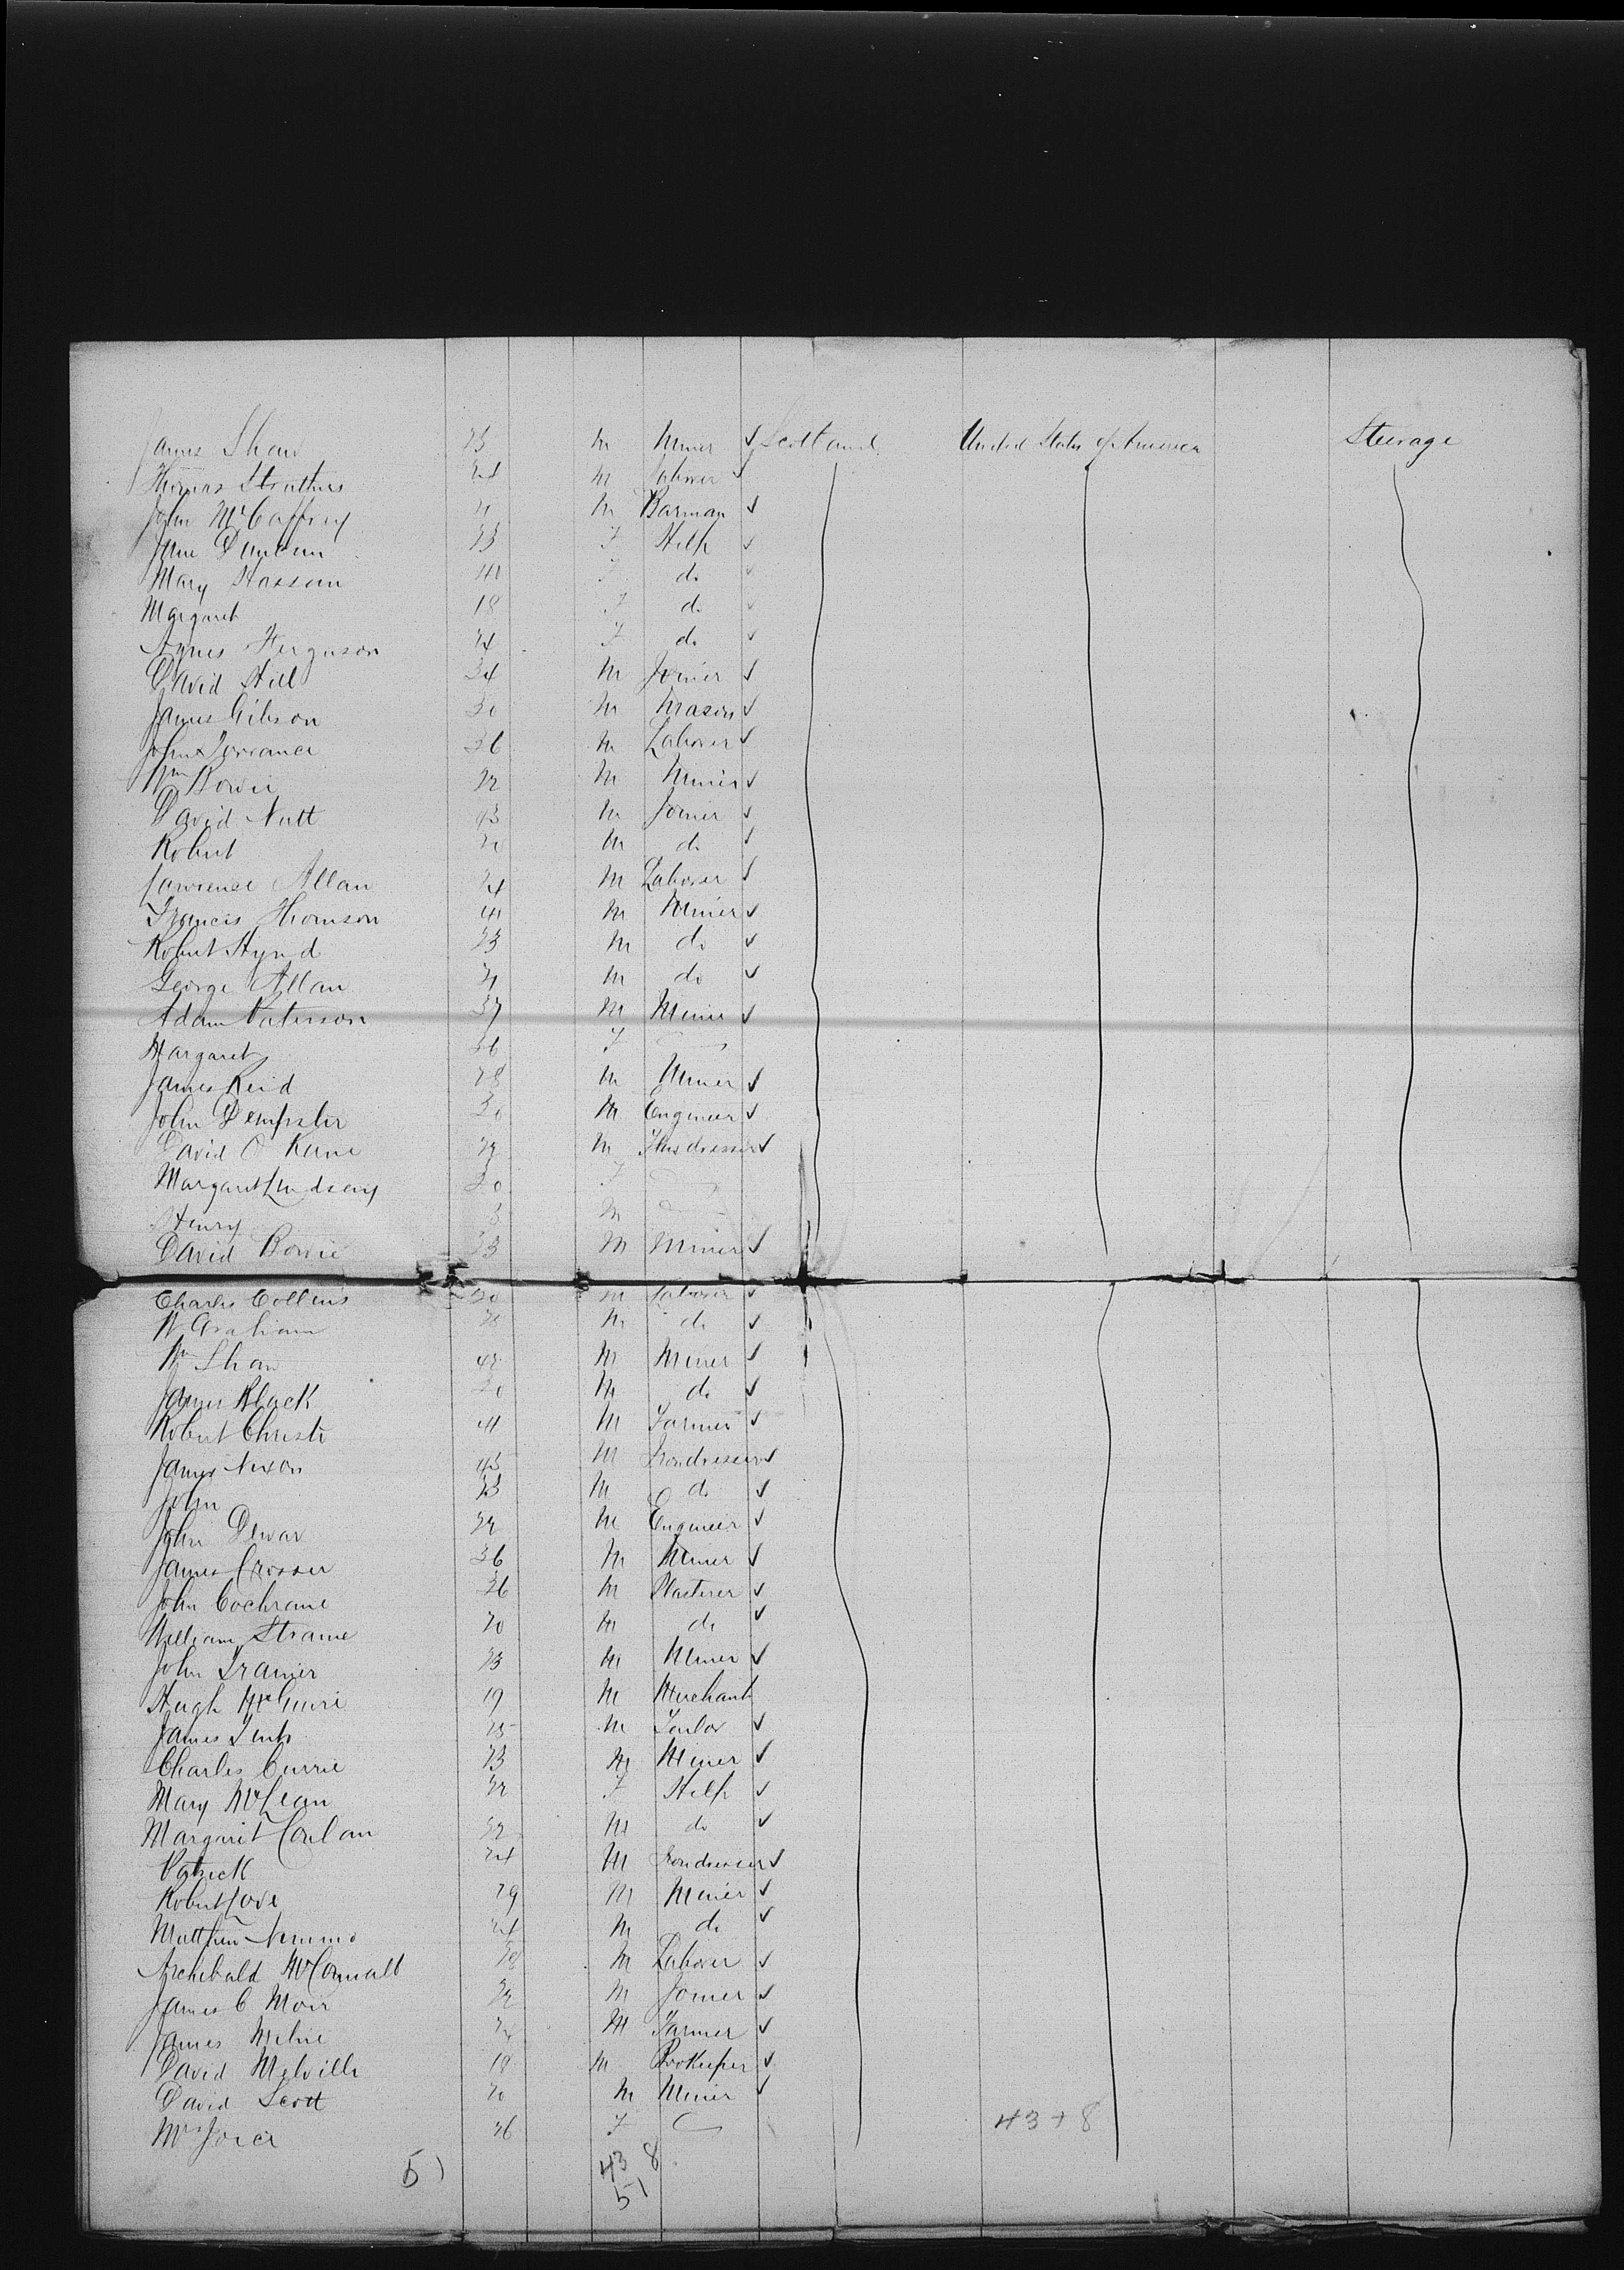 James Shaw 23 M Miner ✓ Scotland United States of America Steerage
Thomas Struthers 24 M Laborer ✓
John McCaffrey 21 M Barman ✓
Jane Duncan 23 F Help ✓
Mary Hassan 41 F do ✓
Margaret 18 F do ✓
Agnes Ferguson 24 F do ✓
David Hill 34 M Joiner ✓
James Gibson 30 M Mason ✓
John Torrance 36 M Laborer ✓
Wm Bowie 22 M Miner ✓
David Nutt 43 M Joiner ✓
Robert 20 M do ✓
Lawrence Allan 24 M Laborer ✓
Francis Thomson 41 M Miner ✓
Robert Hynd 23 M do ✓
George Allan 21 M do ✓
Adam Paterson 37 M Miner ✓
Margaret 36 F
James Reid 28 M Miner ✓
John Dempster 30 M Engineer ✓
David O Kane 22 M ✓
Margaret Lindsay 30 F
Henry 3 M
David Bowie 33 M Miner ✓
Charles Collins 30 M Laborer ✓
W Graham M do ✓
Wm Shaw 42 M Miner ✓
James Black 30 M do ✓
Robert Christi 41 M Farmer ✓
James Nixon 43 M Irondresser ✓
John 23 M do ✓
John Dewar 22 M Engineer ✓
James Crosser 36 M Miner ✓
John Cochrane 36 M Plasterer ✓
William 20 M do ✓
John 23 M Miner ✓
Hugh McGuire 19 M Merchant
James 25 M Tailor ✓
Charles Currie 23 M Miner ✓
Mary McLean 22 F Help ✓
Margaret Conlan 22 M do ✓
Patrick 24 M Irondresser ✓
Robert Love 29 M Miner ✓
Matthew Nimmo 24 M do ✓
Archibald 28 M Laborer ✓
James C Moir 22 M Joiner ✓
James Milne 24 M Farmer ✓
David Melville 18 M Bookeeper ✓
David Scott 20 M Miner ✓
Mrs Joice 26 F 43 + 8
51 43 8
51